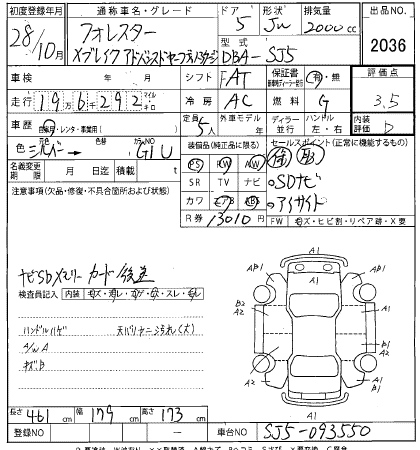 初度登録年月 通称車名・グレード ドア 形状 排気量 出品NO
28/10月 フォレスター 5 2000cc 2036
型式 DBA-SJ5
車検 シフト FAT 保証書 有・無 評価点
走行 19万6千292 マイル キロ 冷房 AC 燃料 G 3.5
車歴 自家用・レンタ・事業用( ) 定員 5人 外車モデル 年 ディーラー 並行 ハンドル 左・右 内装評価 D
色 シルバー 色替 カラーNO G1U 装備品(純正品に限る) セールスポイント(正常に機能するもの)
名義変更期限 月 日迄 積載 t PS PW AW
注意事項(欠品・修復・不具合箇所および状態) SR TV ナビ SDナビ
カワ エアB ABS アイサイト
R券 13010円 FW キズ・ヒビ割・リペア跡・X要
ナビSDメモリーカード後送
検査員記入 内装
ハンドルハゲ
A/W A
キズB
A1
AB1 AB1
B2
A2 A2
A1
A2
B2
AB1 AB1
A1
長さ 461 幅 179 高さ 173
登録NO — 車台NO SJ5-093550